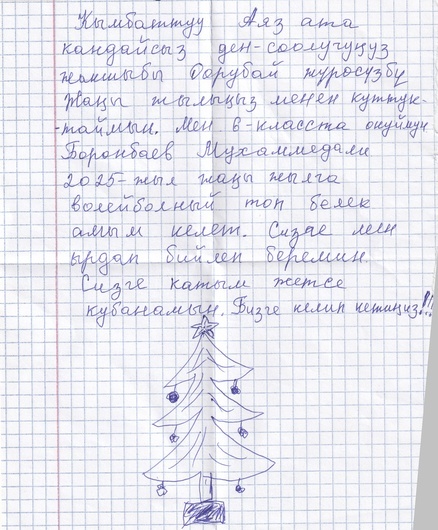 Кымбаттуу Аяз ата
кандайсыз ден-соолугуңуз
жакшыбы Оорубай жүросүзбү
Жаңы жылыңыз менен куттук-
-таймын. Мен 6-класста окуймун
Боронбаев Мухаммедали
2025-жыл жаңы жылга
волейболный топ белек
алгым келет. Сизге мен
ырдап бийлеп беремин.
Сизге катым жетсе
кубанамын. Бизге келип кетиңиз!!!